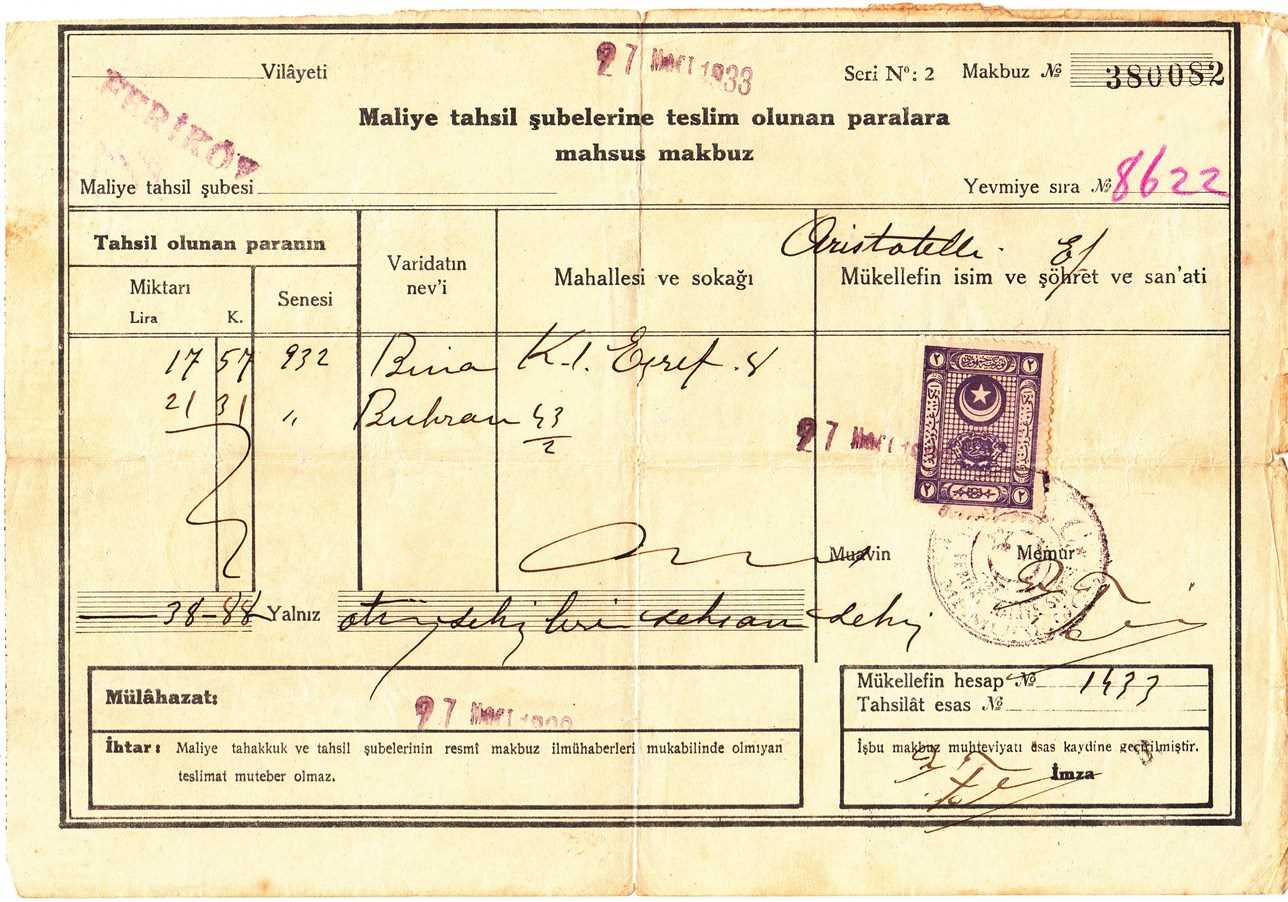 Vilâyeti
27 Mart 1933
Seri Nº: 2 Makbuz № 380082
FERİKÖY
Maliye tahsil şubelerine teslim olunan paralara
mahsus makbuz
Maliye tahsil şubesi
Yevmiye sıra № 8622
Tahsil olunan paranın
Miktarı
Lira K.
Senesi
Varidatın
nev'i
Mahallesi ve sokağı
Aristotelle. Ef
Mükellefin isim ve şöhret ve san'ati
17 57 932 Bina K. Eşref. 8
21 31 " Buhran 43
2
٢ ٢
٢ ٢
27 Mart
Muavin
Memur
38-88 Yalnız otuz sekiz lira seksan sekiz
Mülâhazat:
27 Mart 1933
İhtar: Maliye tahakkuk ve tahsil şubelerinin resmî makbuz ilmühaberleri mukabilinde olmıyan
teslimat muteber olmaz.
Mükellefin hesap № 1433
Tahsilât esas №
İşbu makbuz muhteviyatı esas kaydine geçirilmiştir.
İmza